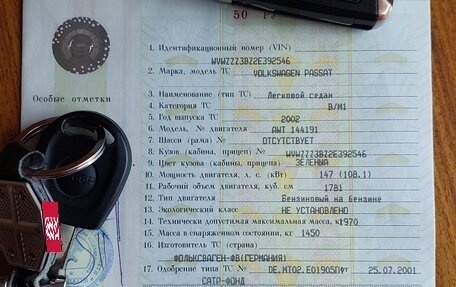 50 РУ
1. Идентификационный номер (VIN)
WVWZZZ3BZ2E392546
2. Марка, модель ТС VOLKSWAGEN PASSAT
3. Наименование (тип ТС) Легковой седан
Особые отметки
4. Категория ТС B/M1
5. Год выпуска ТС 2002
6. Модель, № двигателя AWT 144191
7. Шасси (рама) № ОТСУТСТВУЕТ
8. Кузов (кабина, прицеп) № WVWZZZ3BZ2E392546
9. Цвет кузова (кабины, прицепа) ЗЕЛЕНЫЙ
10. Мощность двигателя, л. с. (кВт) 147 (108.1)
11. Рабочий объем двигателя, куб. см 1781
12. Тип двигателя Бензиновый на бензине
13. Экологический класс НЕ УСТАНОВЛЕНО
14. Технически допустимая максимальная масса, кг 1970
15. Масса в снаряженном состоянии, кг 1450
16. Изготовитель ТС (страна)
ФОЛЬКСВАГЕН-ФВ(ГЕРМАНИЯ)
17. Одобрение типа ТС № DE.MT02.E01905Пфт 25.07.2001
САТР-ФОНД